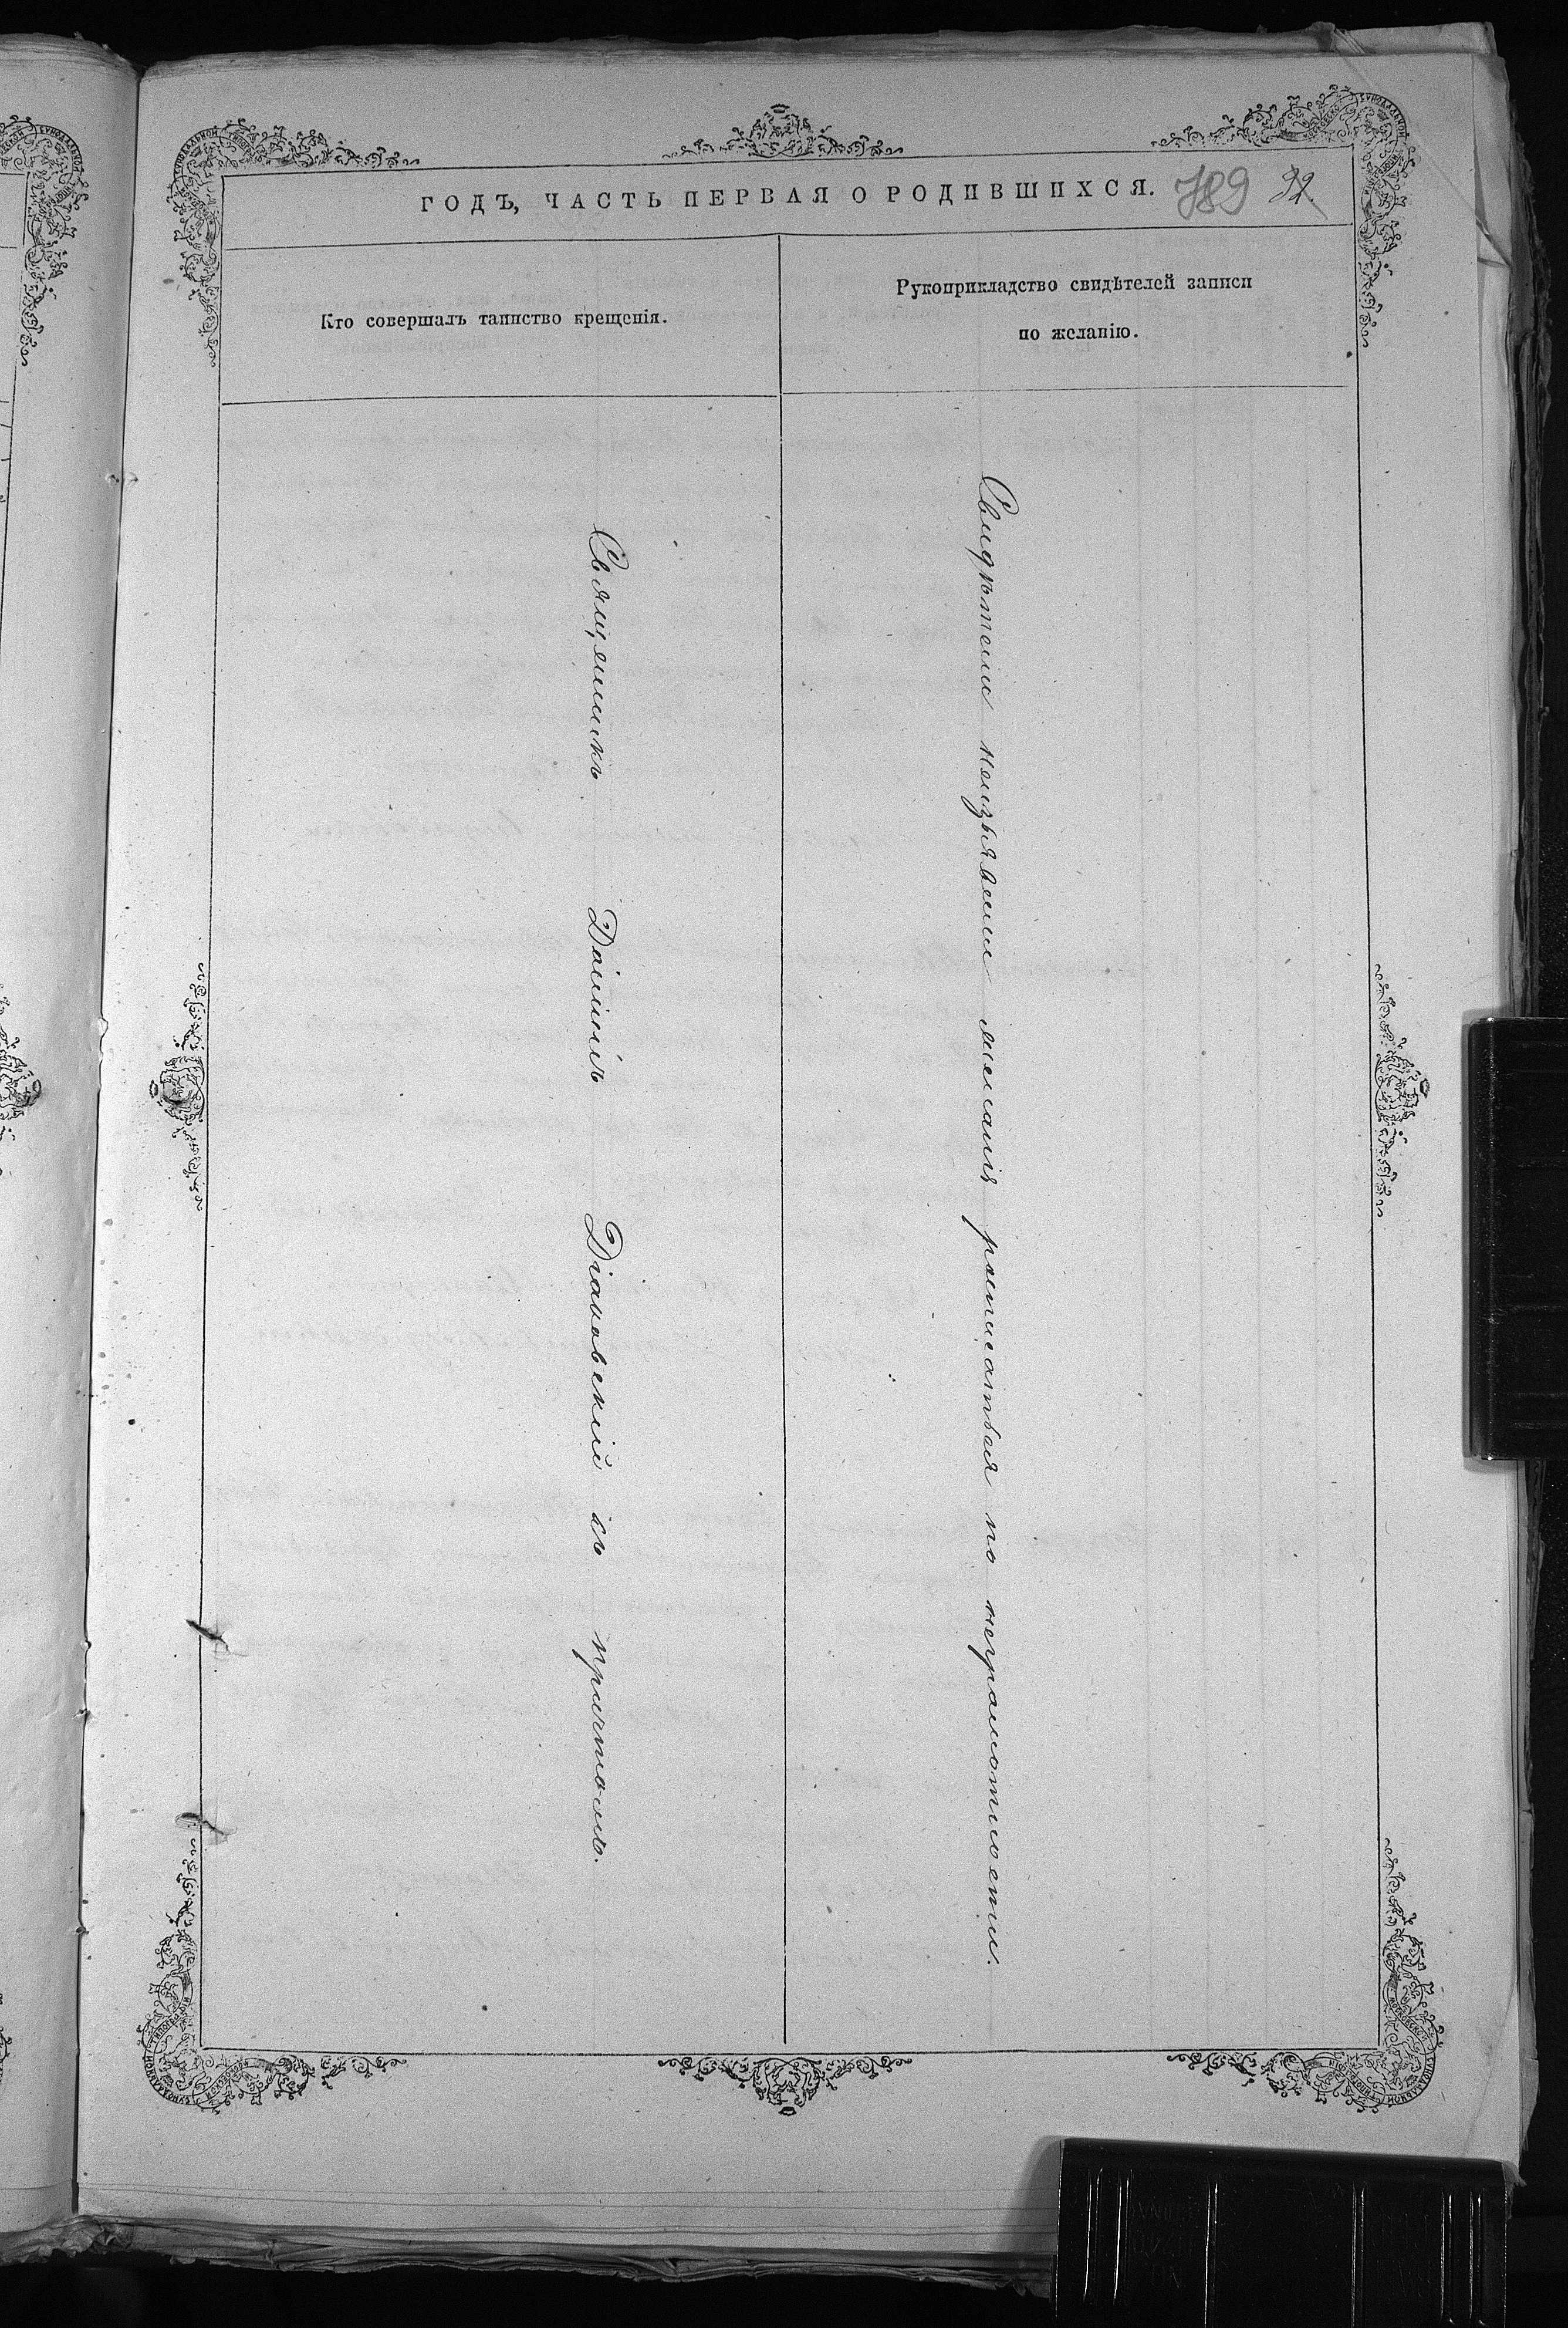 ГОДЪ, ЧАСТЬ ПЕРВАЯ О РОДИВШИХСЯ.
789 32.
Кто совершалъ таинство крещенія.
Рукоприкладство свидѣтелей записи
по желанію.
Священникъ Даніилъ Діаковскій съ причтомъ.
Свидѣтели неизъявили желанія росписаться по неграмотности.